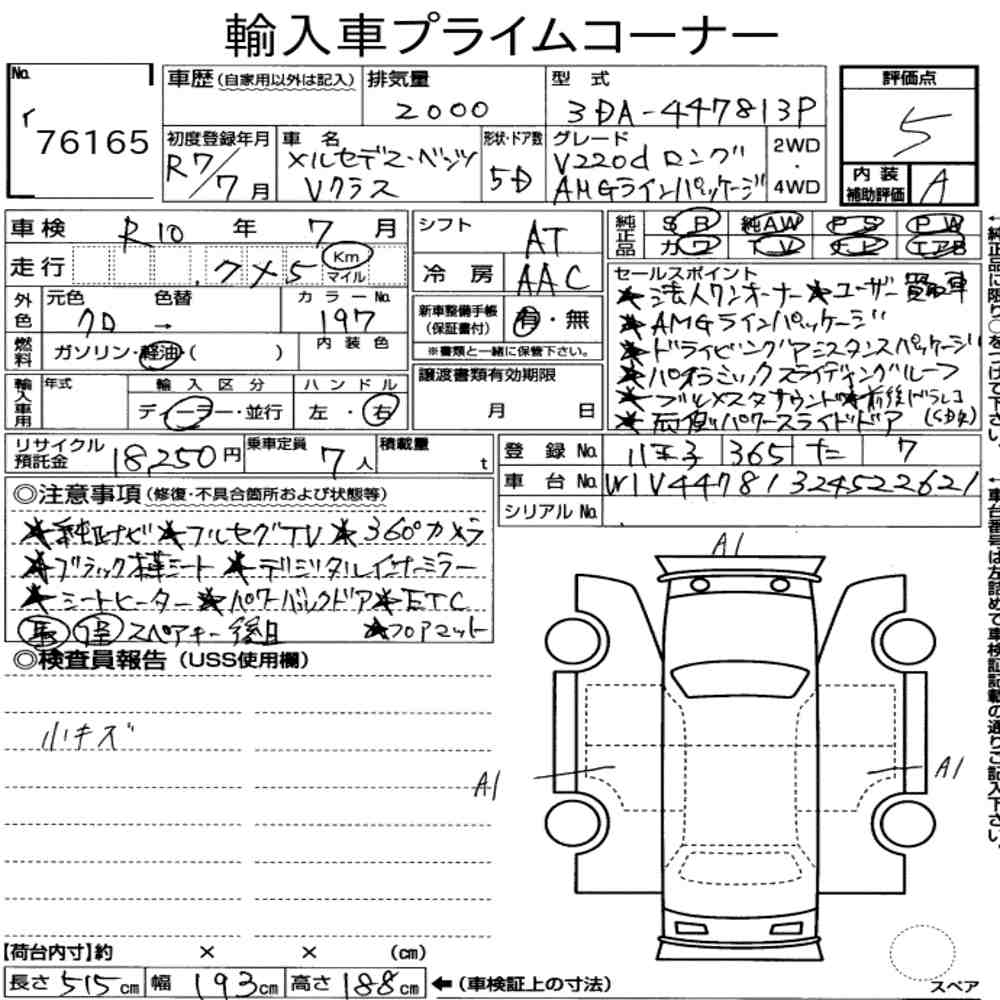 輸入車プライムコーナー
No. イ 76165
車歴(自家用以外は記入)
排気量 2000
型式 3DA-447813P
初度登録年月 R7/7月
車名 メルセデス・ベンツ Vクラス
形状・ドア数 5D
グレード V220d ロング AMGラインパッケージ
2WD・4WD
評価点 5
内装補助評価 A
車検 R10年 7月
走行 .7×5 Km マイル
外色 元色 クロ 色替 →
カラーNo. 197
内装色
燃料 ガソリン・軽油・( )
輸入車用 年式
輸入区分 ディーラー・並行
ハンドル 左・右
シフト AT
冷房 AAC
新車整備手帳(保証書付) 有・無
※書類と一緒に保管下さい。
譲渡書類有効期限
月 日
純正品 SR 純AW PS PW
カワ TV ナビ エアB
セールスポイント
★法人ワンオーナー★ユーザー買取車
★AMGラインパッケージ
★ドライビングアシスタンスパッケージ
★パノラミックスライディングルーフ
★ブルメスタサウンド★前後ドラレコ
★両側パワースライドドア
←純正品に限り○をつけて下さい。
リサイクル預託金 18250円
乗車定員 7人
積載量 t
登録No. 八王子 365 た 7
車台No. W1V44781324522621
シリアルNo.
←車台番号は左詰めで車検証記載の通りご記入下さい。
◎注意事項(修復・不具合箇所および状態等)
★純正ナビ★フルセグTV★360°カメラ
★ブラック本革シート★デジタルインナーミラー
★シートヒーター★パワーバックドア★ETC
スペアキー後日 ★フロアマット
◎検査員報告(USS使用欄)
小キズ
A1
A1
A1
【荷台内寸】約 × × (cm)
長さ515cm 幅193cm 高さ188cm ←(車検証上の寸法)
スペア